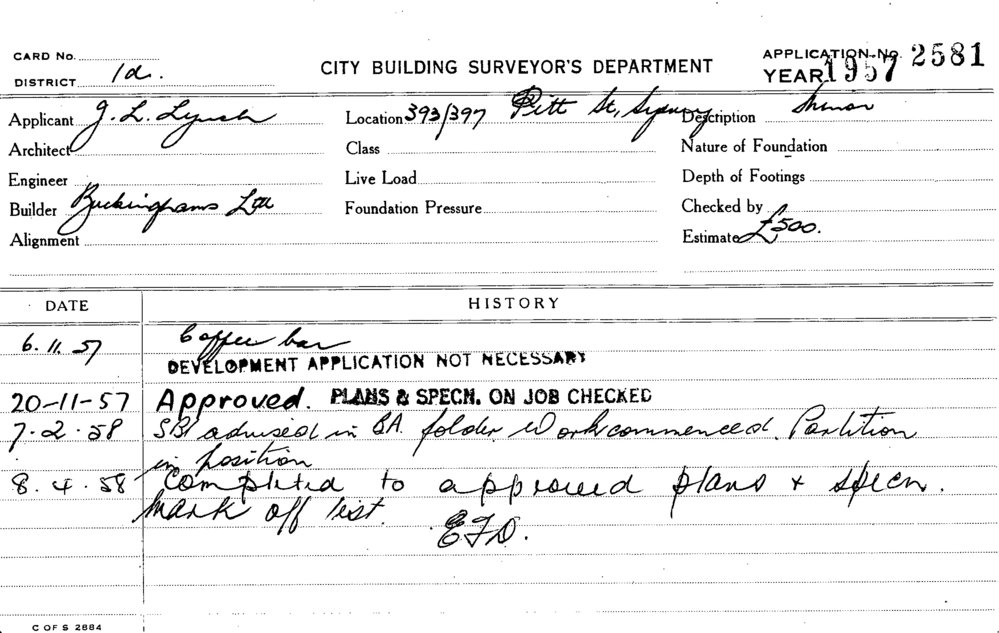 CARD No.
APPLICATION No. 2581
DISTRICT 1d.
CITY BUILDING SURVEYOR'S DEPARTMENT
YEAR 1957
Applicant J. L. Lynch
Location 393/397 Pitt St, Sydney
Description Minor
Architect
Class
Nature of Foundation
Engineer
Live Load
Depth of Footings
Builder Buckinghams Ltd
Foundation Pressure
Checked by
Alignment
Estimate £500.
DATE HISTORY
6.11.57 Coffee bar
DEVELOPMENT APPLICATION NOT NECESSARY
20-11-57 Approved. PLANS & SPECN. ON JOB CHECKED
7.2.58 SBI advised in BA folder. Work commenced. Partition
in position
8.4.58 Completed to approved plans & specn.
Mark off list.
EFD.
C OF S 2884